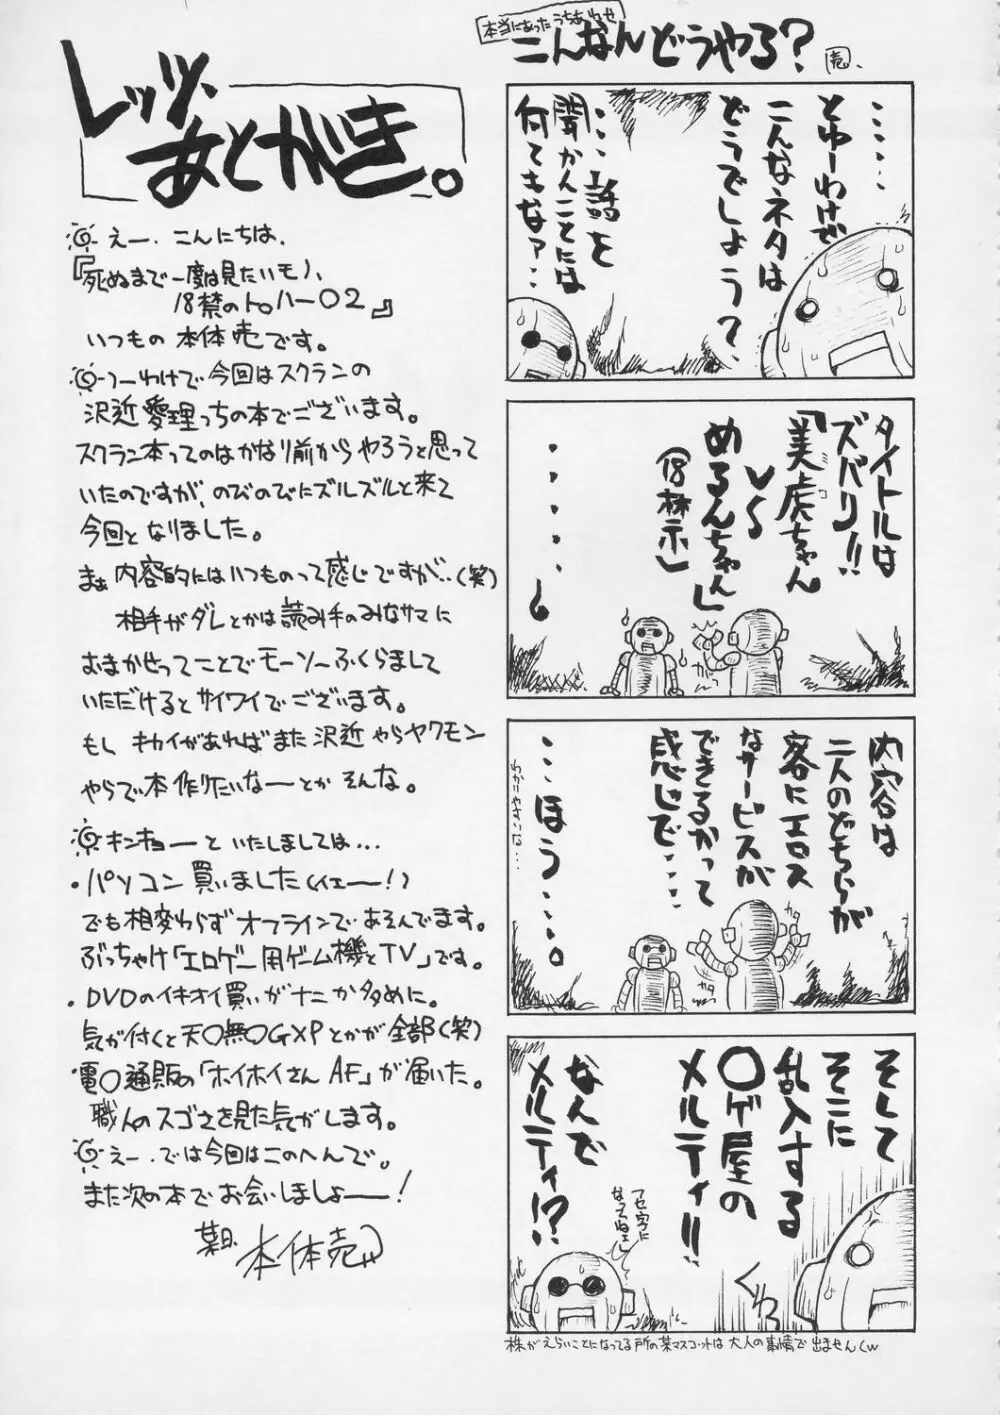 レッツ、
あとがき。
えー、こんにちは、
『死ぬまで一度は見たいモノ、
18禁のトロハー02』
いつもの 本体売です。
つーわけで今回はスクランの
沢近愛理っちの本でございます。
スクラン本ってのはかなり前からやろうと思って
いたのですが、のびのびにズルズルと来て
今回となりました。
まぁ内容的にはいつものって感じですが‥(笑)
相手がダレとかは読み手のみなサマに
おまかせってことでモーソーふくらまして
いただけるとサイワイでございます。
もし キカイがあればまた沢近やらヤクモン
やらで本作りたいなーとか そんな。
キンキョーといたしましては…
・パソコン買いました(イェー!)
でも相変わらずオフラインであそんでます。
ぶっちゃけ「エロゲー用ゲーム機とTV」です。
・DVDのイキオイ買いがナニか多めに。
気が付くと天○無○GXPとかが全部(笑)
電○通販の「ホイホイさんAF」が届いた。
職人のスゴさを見た気がします。
えー、では今回はこのへんで。
また次の本でお会いしましょー!
本体売
本当にあったうちあわせ
こんなんどうやる?
売
‥‥‥
とゆーわけで
こんなネタは
どうでしょう?
‥‥話を
聞かんことには
何てもなァ‥
タイトルは
ズバリ!!
「美虎ちゃん
ミコ
VS
めるんちゃん」
(18禁)
‥‥‥
内容は
二人のどちらが
客にエロス
なサービスが
できるかって
感じで‥‥
‥‥ほう‥‥。
わかりやすいな…
カタ
カタ
そして
そこに
乱入する
○ゲ屋の
メルティ!!
なんで
メルティ!?
フセ字に
なってねェし
くわっ
株がえらいことになってる所の某マスコットは大人の事情で出ませんくw